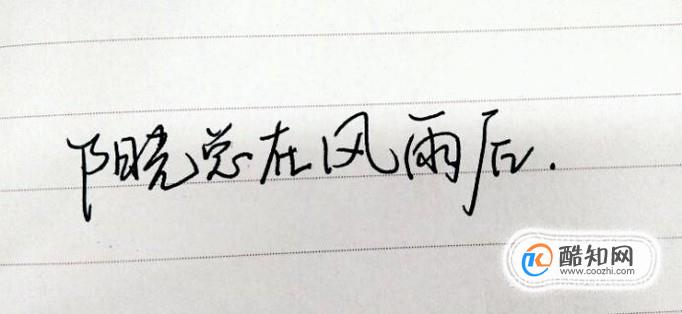 阳光总在风雨后.
酷知网
www.coozhi.com